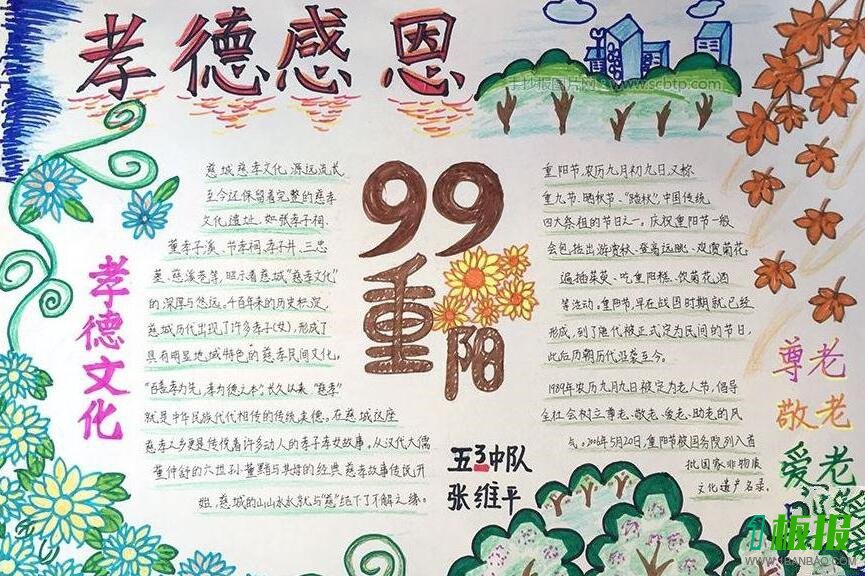 孝德感恩
手抄报图片网 www.scbtp.com
孝德文化
慈城慈孝文化,源远流长
至今还保留着完整的慈孝
文化遗址。如张孝子祠、
董孝子溪、节孝祠、孝子井、三忠
墓、慈溪巷等,昭示着慈城“慈孝文化”
的深厚与悠远。千百年来的历史积淀,
慈城历代出现了许多孝子(女),形成了
具有明显地域特色的慈孝民间文化。
“百善孝为先,孝为德之本”,长久以来“慈孝”
就是中华民族代代相传的传统美德。在慈城这座
慈孝之乡更是传侵着许多动人的孝子孝女故事。从汉代大儒
董仲舒的六世孙董黯与其母的经典慈孝故事传说开
始,慈城的山山水水就与“慈”结下了不解之缘。
99
重
阳
五3中队
张维平
重阳节,农历九月初九日,又称
重九节、晒秋节、“踏秋”,中国传统
四大祭祖的节日之一。庆祝重阳节一般
会包括出游赏秋、登高远眺、观赏菊花、
遍插茱萸、吃重阳糕、饮菊花酒
等活动。重阳节,早在战国时期就已经
形成,到了唐代被正式定为民间的节日,
此后历朝历代沿袭至今。
1989年农历九月九日被定为老人节,倡导
全社会树立尊老、敬老、爱老、助老的风
气。2006年5月20日,重阳节被国务院列入首
批国家非物质
文化遗产名录。
尊老
敬老
爱老
板报
WWW.JBANBAO.COM